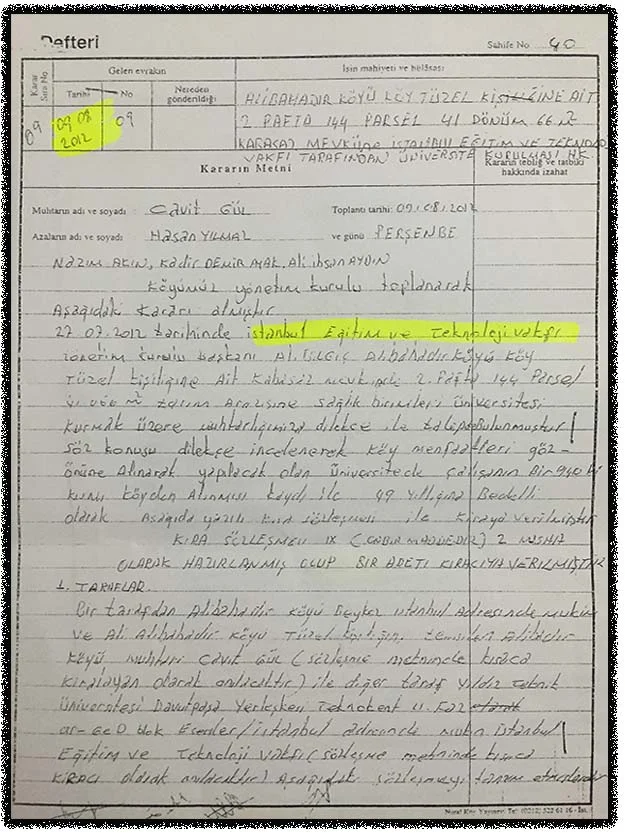 Defteri
Sahife No 40
Karar Sıra No
Gelen evrakın
Tarihi No
Nereden gönderildiği
İşin mahiyeti ve hülâsası
09
09 08 2012
09
ALİBAHADIR KÖYÜ KÖY TÜZEL KİŞİLİĞİNE AİT
2 PAFTA 144 PARSEL 41 DÖNÜM 66
MEVKİİNE İSTANBUL EĞİTİM VE TEKNOLOJİ
VAKFI TARAFINDAN ÜNİVERSİTE KURULMASI HK.
Kararın Metni
Kararın tebliğ ve tatbiki hakkında izahat
Muhtarın adı ve soyadı: Cavit GÜL
Toplantı tarihi: 09/08/2012
Azaların adı ve soyadı: Hasan YILMAZ
ve günü PERŞENBE
NAZIM AKIN, Kadir DEMİR, Ali ihsan AYDIN
Köyümüz yönetim kurulu toplanarak
Aşağıdaki Kararı almıştır
27.07.2012 tarihinde istanbul Eğitim ve Teknoloji vakfı
yönetim kurulu başkanı Ali Alibahadır köyü köy
Tüzel kişiliğine Ait mevkinde 2. Pafta 144 Parsel
tarım Arazisine sağlık birimleri üniversitesi
kurmak üzere muhtarlığımıza dilekçe ile talepte bulunmuştur
söz konusu dilekçe incelenerek köy menfaatleri göz-
önüne Alınarak yapılacak olan üniversitede çalışanın Bir
kısmı köyden Alınması kaydı ile 49 Yıllığına Bedelli
olarak Aşağıda yazılı kira sözleşmesi ile Kiraya verilmiştir
KİRA SÖZLEŞMESİ 2 NUSHA
OLARAK HAZIRLANMIŞ OLUP BİR ADETİ KİRACIYA VERİLMİŞTİR
1. TARAFLAR
Bir taraftan Alibahadır köyü Beykoz istanbul Adresinde mukim
ve Ali Alibahadır köyü Tüzel kişiliğini temsilen
köyü muhtarı Cavit GÜL (sözleşme metninde kısaca
kiralayan olarak anılacaktır) ile diğer taraf Yıldız Teknik
üniversitesi Davutpaşa Yerleşkesi Teknokent
ar-Ge D blok Esenler/istanbul adresinde mukim istanbul
Eğitim ve Teknoloji vakfı (sözleşme metninde kısaca
KİRACI olarak anılacaktır) Aşağıdaki sözleşmeyi tanzim etmişlerdir